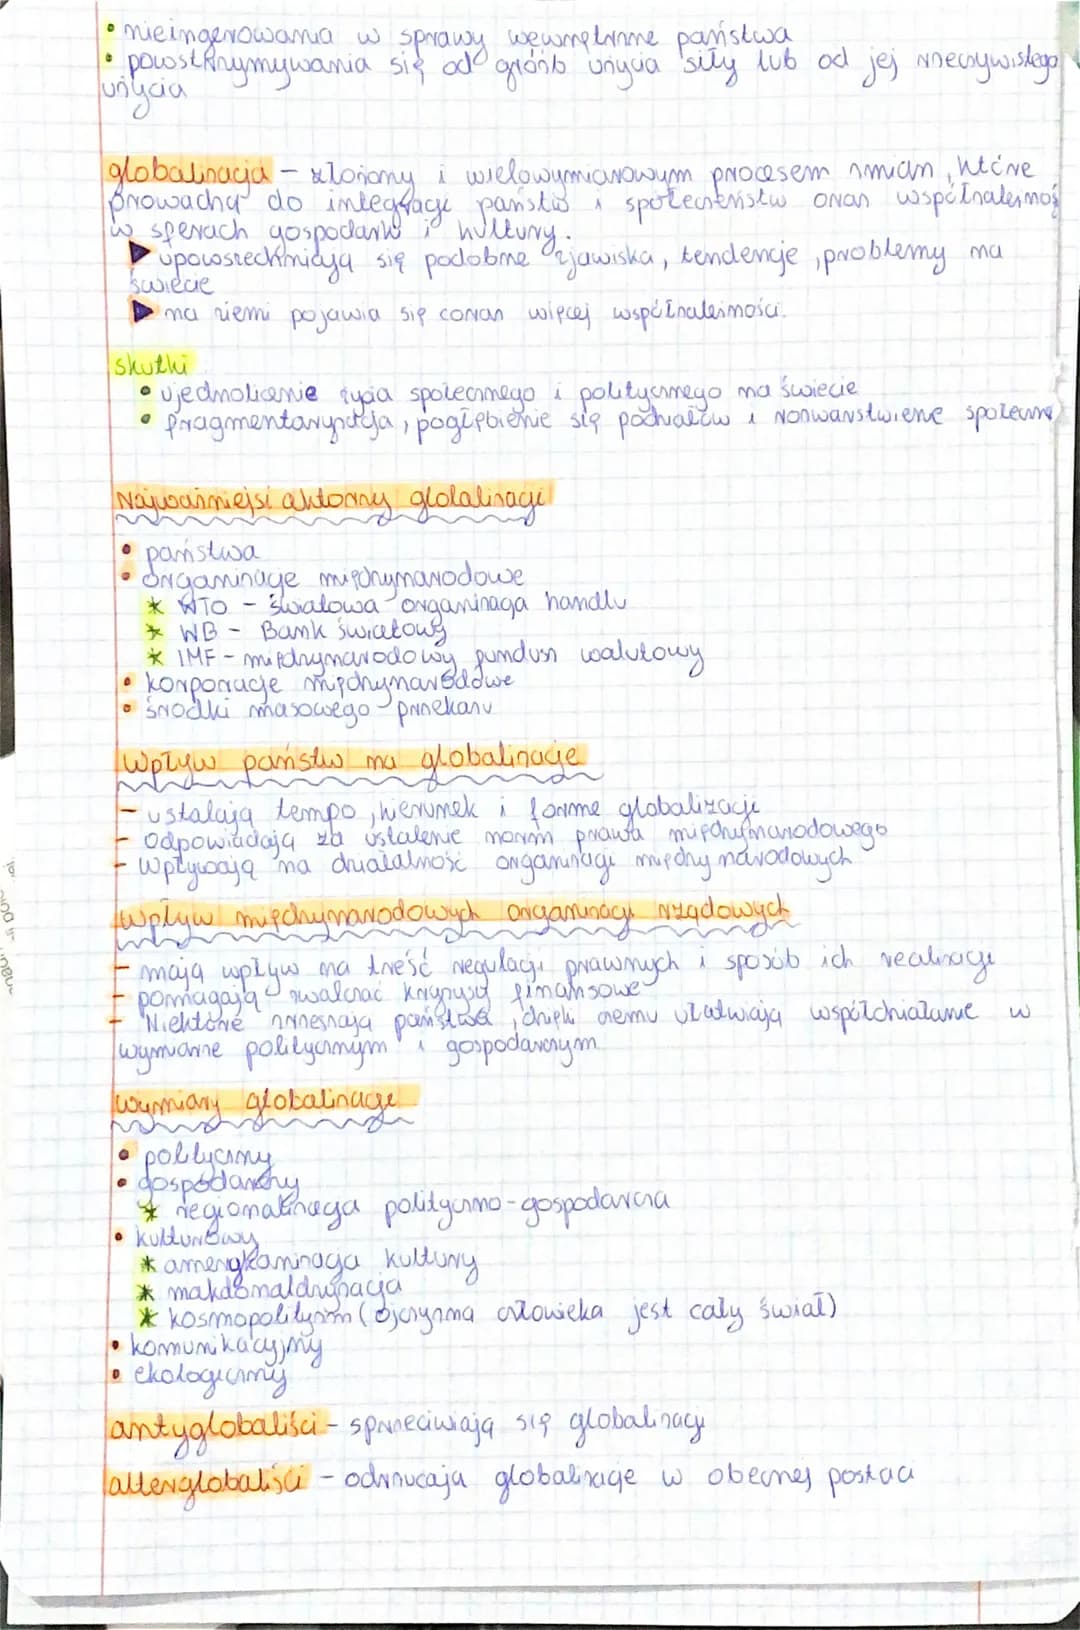 • nieingerowania w sprawy wewnętrzne państwa
• powstrzymywania się od gróźb użycia siły lub od jej rzeczywistego
użycia
globalizacja – złożony i wielowymiarowym procesem zmian, które
prowadzą do integracji państw i społeczeństw oraz współzależność
w sferach gospodarki i kultury.
▶ upowszechniają się podobne zjawiska, tendencje, problemy na
świecie
▶ na ziemi pojawia się coraz więcej współzależności.
skutki
• ujednolicenie życia społecznego i politycznego na świecie
• fragmentaryzacja, pogłębienie się podziałów i rozwarstwienie społeczne
Najważniejsi aktorzy globalizacji
• państwa
• organizacje międzynarodowe
* WTO – światowa organizacja handlu
* WB – Bank światowy
* IMF – międzynarodowy fundusz walutowy
• korporacje międzynarodowe
• środki masowego przekazu
Wpływ państw na globalizację
– ustalają tempo, kierunek i formę globalizacji
– odpowiadają za ustalenie norm prawa międzynarodowego
– Wpływają na działalność organizacji międzynarodowych
Wpływ międzynarodowych organizacji rządowych
– mają wpływ na treść regulacji prawnych i sposób ich realizacji
– pomagają zwalczać kryzysy finansowe
– Niektóre zrzeszają państwa, dzięki czemu ułatwiają współdziałanie w
wymiarze politycznym i gospodarczym
wymiary globalizacji
• polityczny
• gospodarczy
* regionalizacja polityczno-gospodarcza
• kulturowy
* amerykanizacja kultury
* makdonaldyzacja
* kosmopolityzm (ojczyzną człowieka jest cały świat)
• komunikacyjny
• ekologiczny
antyglobaliści – sprzeciwiają się globalizacji
alterglobaliści – odrzucają globalizację w obecnej postaci